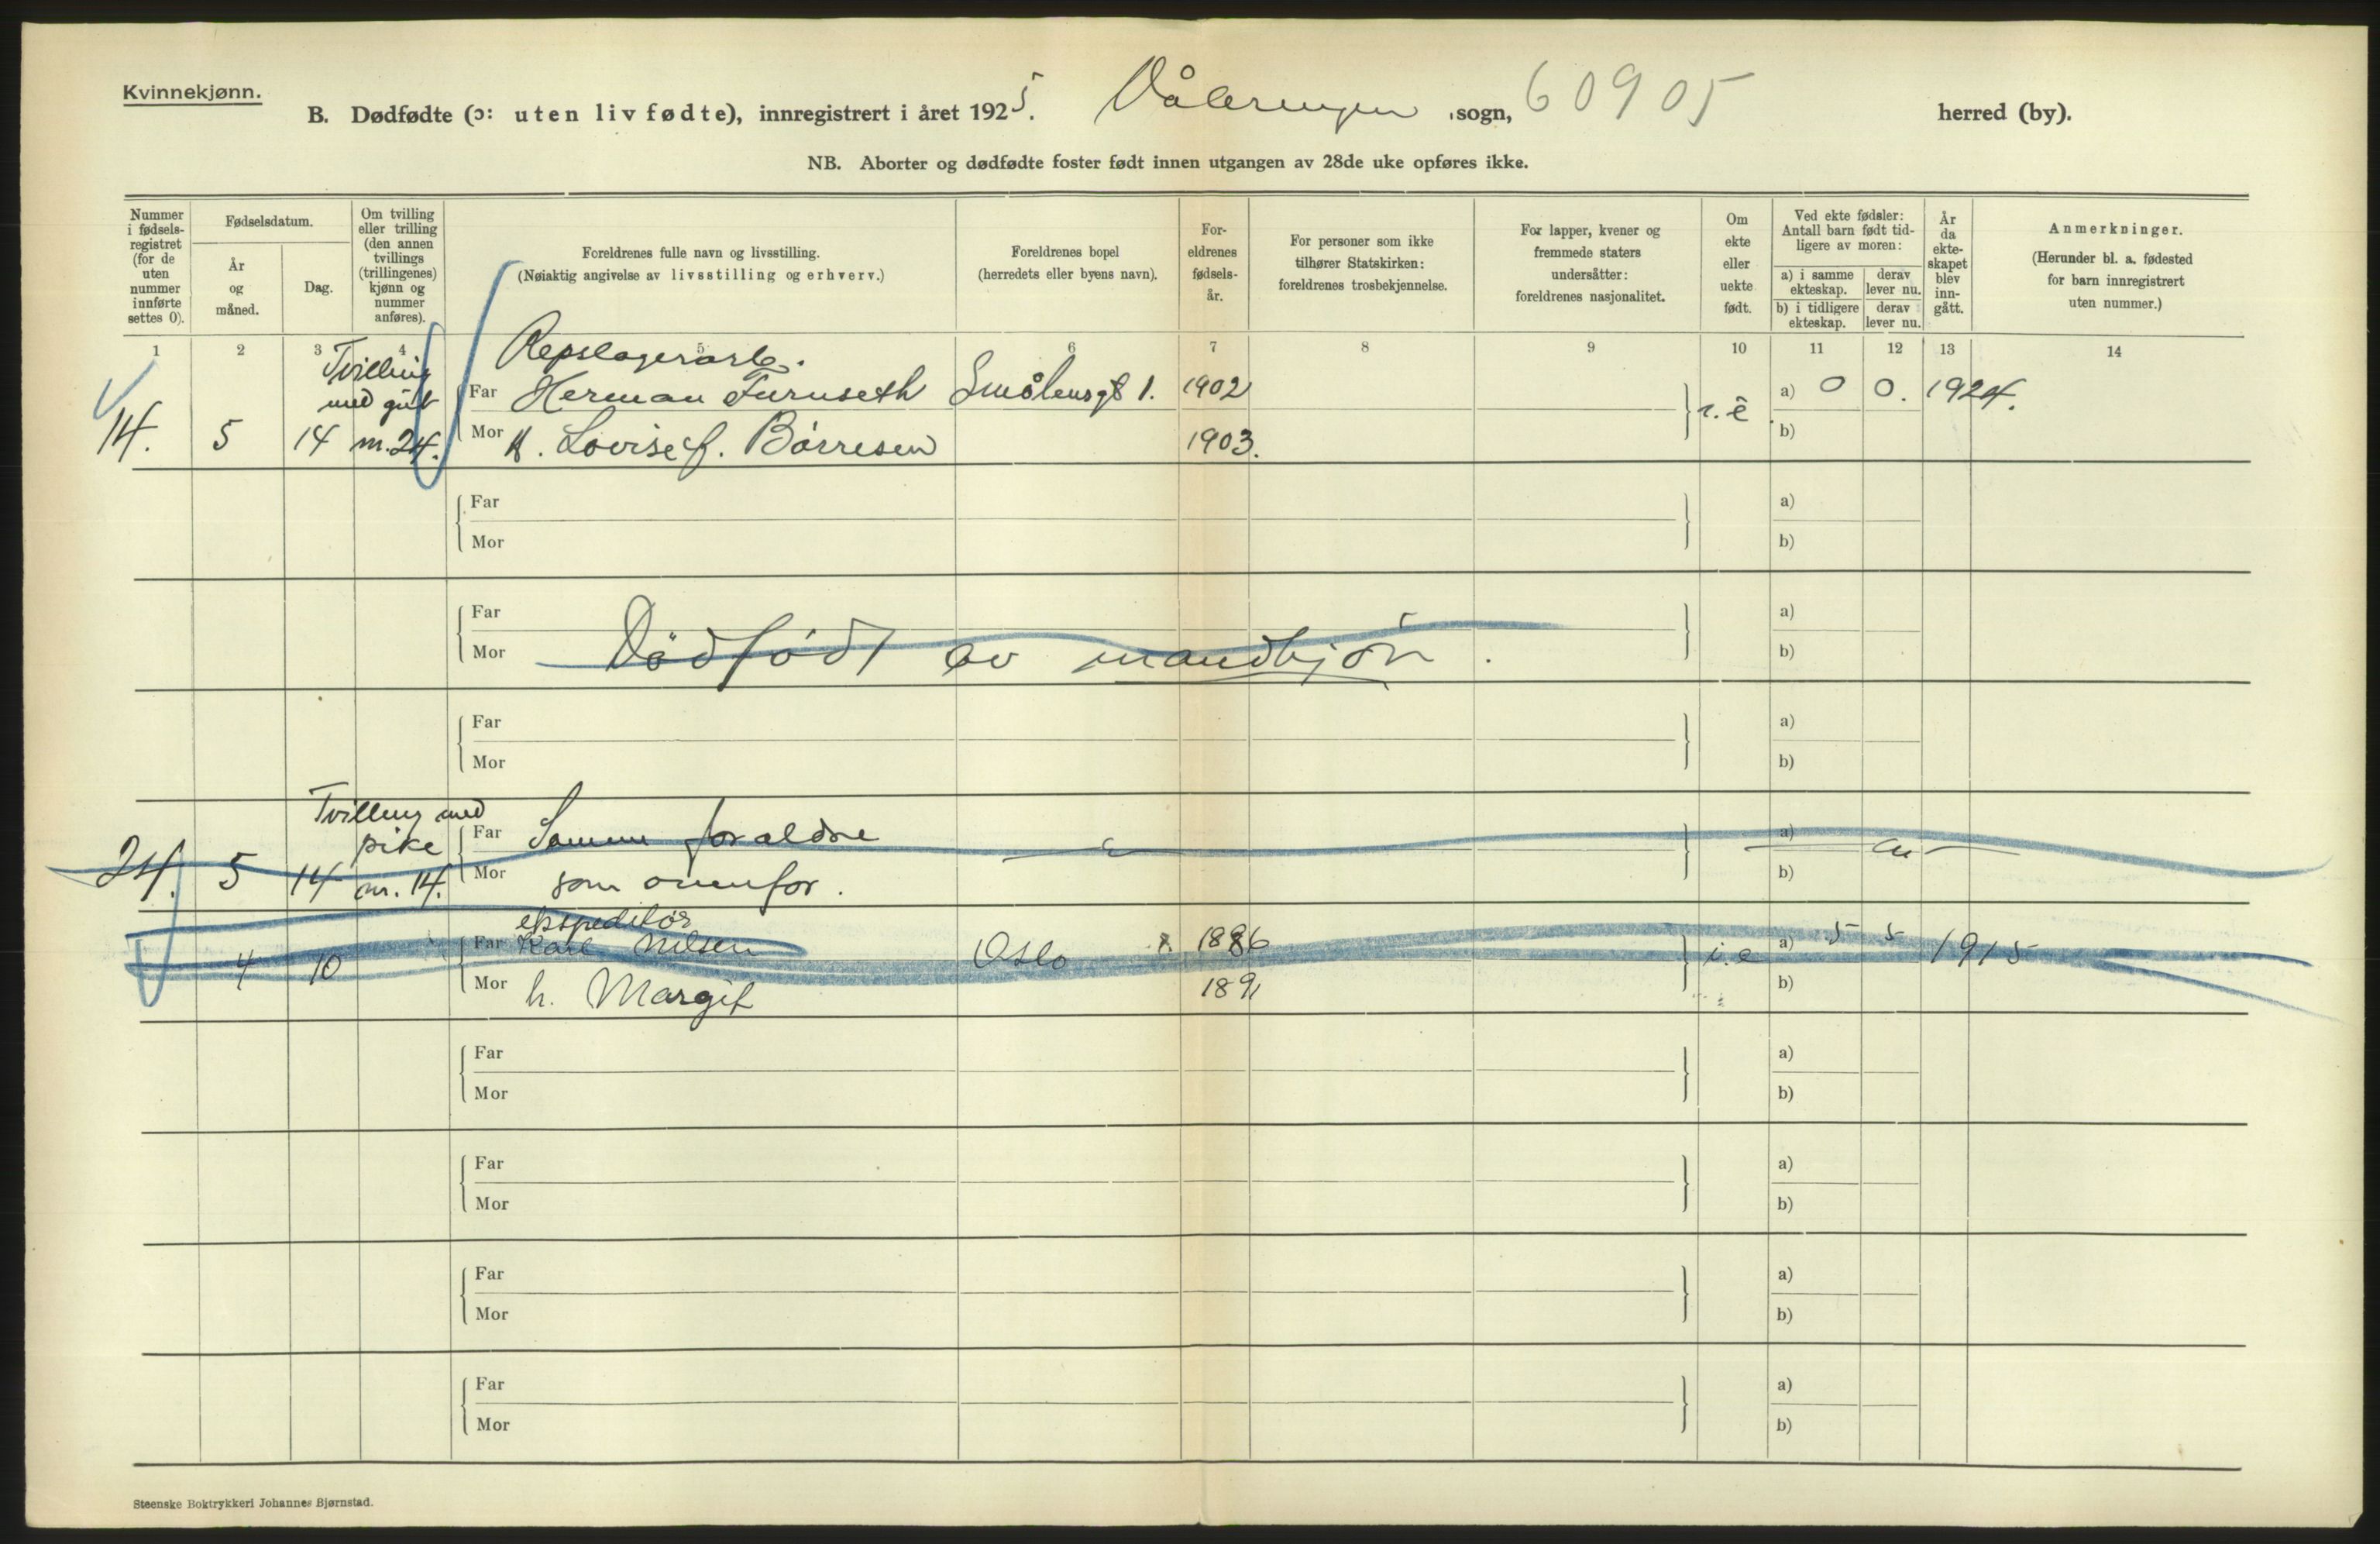 Kvinnekjønn.
B. Dødfødte (ɔ: uten liv fødte), innregistrert i året 1925. Våleringen sogn, 60905 herred (by).
NB. Aborter og dødfødte foster født innen utgangen av 28de uke opføres ikke.
Nummer i fødsels-registret (for de uten nummer innførte settes 0).
Fødselsdatum.
År og måned.
Dag.
Om tvilling eller trilling (den annen tvillings (trillingenes) kjønn og nummer anføres).
Foreldrenes fulle navn og livsstilling.
(Nøiaktig angivelse av livsstilling og erhverv.)
Foreldrenes bopel
(herredets eller byens navn).
For-eldrenes fødsels-år.
For personer som ikke tilhører Statskirken: foreldrenes trosbekjennelse.
For lapper, kvener og fremmede staters undersåtter: foreldrenes nasjonalitet.
Om ekte eller uekte født.
Ved ekte fødsler: Antall barn født tid-ligere av moren:
a) i samme ekteskap.
derav lever nu.
b) i tidligere ekteskap.
derav lever nu.
År da ekte-skapet blev inn-gått.
Anmerkninger.
(Herunder bl. a. fødested for barn innregistrert uten nummer.)
1 2 3 4 5 6 7 8 9 10 11 12 13 14
Tvilling med gut
Repslagerarb.
Far Herman Furuseth Smålensgt 1. 1902 a) 0 0. 1924.
14. 5 14 nr. 24. Mor h. Lovise f. Børresen 1903. b)
Far a)
Mor b)
Far a)
Mor Dödfödt av mandkjön. b)
Far a)
Mor b)
Tvilling med pike
Far Samme foraldre a)
24. 5 14 nr. 14. Mor som ovenfor. b)
ekspeditör
4 10 Far Karl Nilsen Oslo 1886 i. e a) 5 5 1915
Mor h. Margit 1891 b)
Far a)
Mor b)
Far a)
Mor b)
Far a)
Mor b)
Far a)
Mor b)
Steenske Boktrykkeri Johannes Bjørnstad.